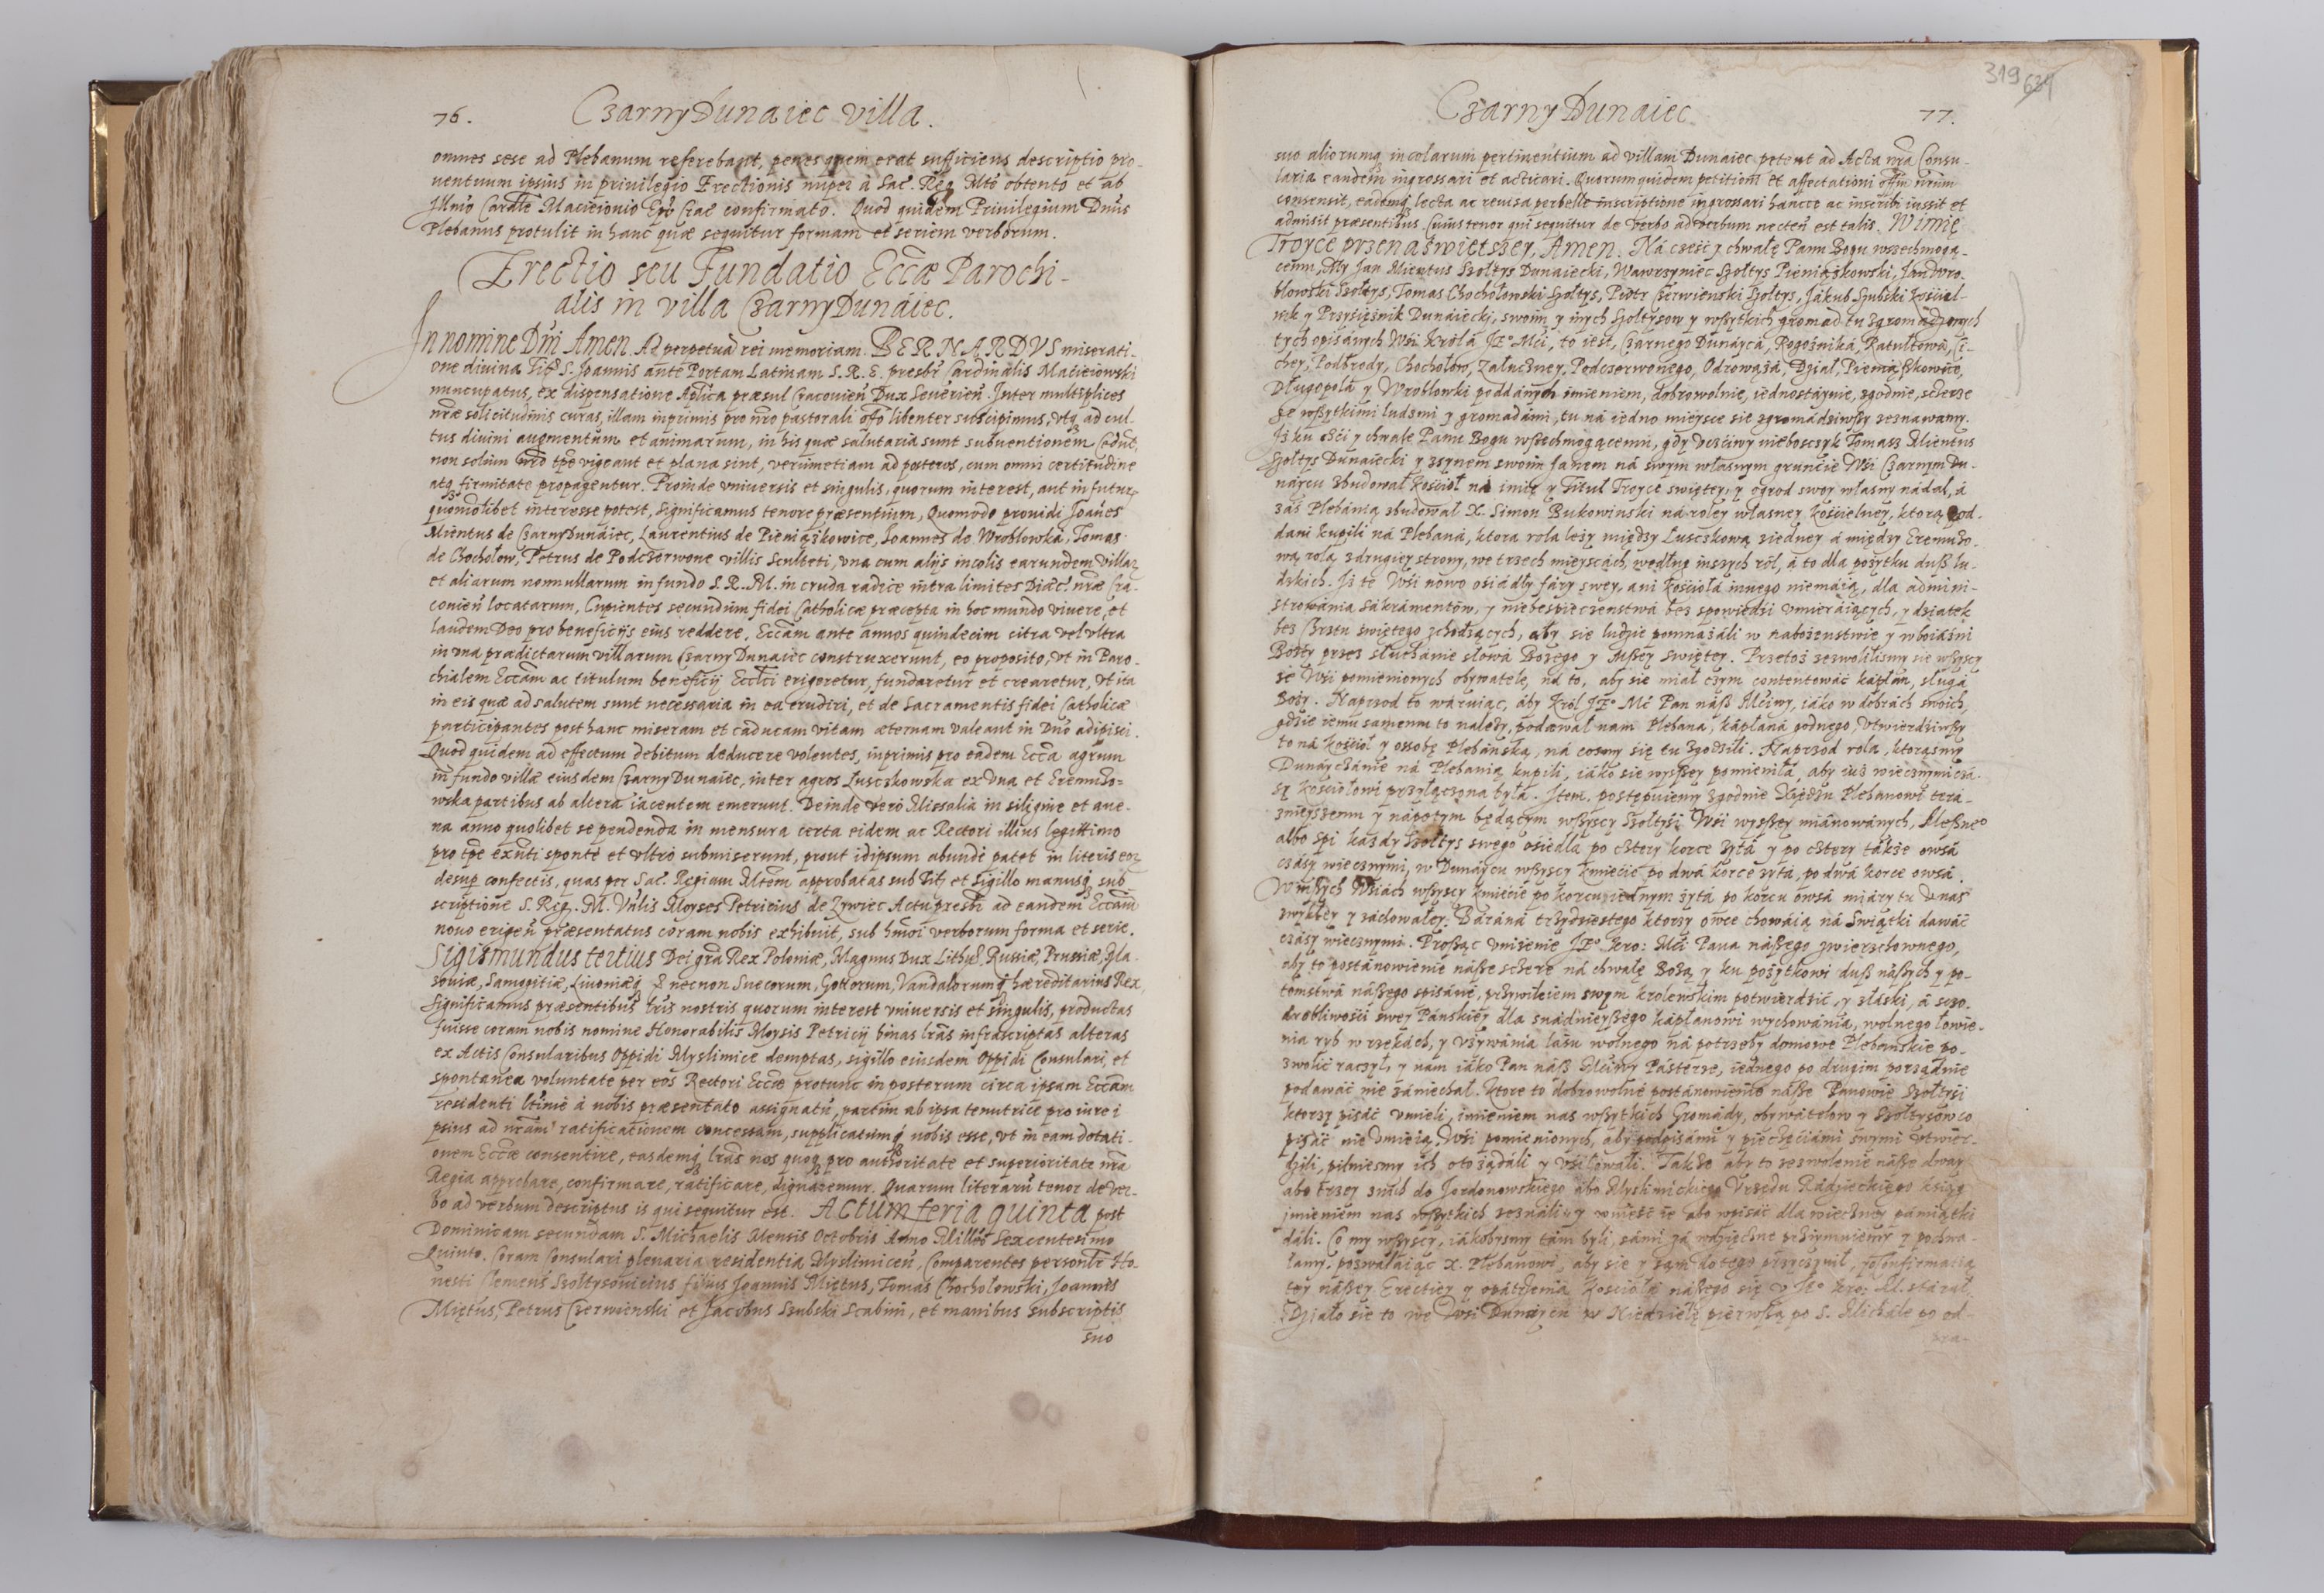 76. CzarnyDunaiec villa.
omnes sese ad Plebanum referebant, penes quem erat sufficiens descriptio pro-
uentuum ipsius in priuilegio Erectionis nuper à Sac. Reg. Mte obtento et ab
Illmo Cardle Macieionio Epo Crac confirmato. Quod quidem Priuilegium Dnus
Plebanus protulit in hanc quæ sequitur formam et seriem verborum.
Erectio seu Fundatio Eccæ Parochi-
alis in villa CzarnyDunáiec.
In nomine Dni Amen. Ad perpetuã rei memoriam. BERNARDVS miserati-
one diuina Tit. S. Joannis ante Portam Latinam S. R. E. presbr Cardinalis Macieiowski
nuncupatus, ex dispensatione Aplica præsul Cracouien Dux Seuerien. Inter multiplices
nræ solicitudinis curas, illam inprimis pro nro pastorali offo libenter suscipimus, vtq ad cul-
tus diuini augmentum et animarum, in his quæ salutaria sunt subuentionem
non solum nro tpe vigeant et plana sint, verumetiam ad posteros, cum omni certitudine
atq firmitate propagentur. Proinde vniuersis et singulis, quorum interest, aut in futur
quomolibet interesse potest, significamus tenore præsentium, Quomodo prouidi Joanes
Mientus de CzarnyDunaiec, Laurentius de Pieniążkowice, Joannes de Wroblowka, Tomas
de Chochołow, Petrus de Podczerwone villis Sculteti, vna cum alijs incolis earundem villar
et aliarum nonnullarum in fundo S. R. M. in cruda radice intra limites Diæc. nræ Cra-
couien locatarum, Cupientes secundum fidei Catholicæ præcepta in hoc mundo viuere, et
laudem Deo pro beneficijs eius reddere, Eccam ante annos quindecim citra vel vltra
in vna prædictarum villarum CzarnyDunaiec construxerunt, eo proposito, vt in Paro-
chialem Eccam ac titulum beneficij Eccltci erigeretur, fundaretur et crearetur, vt ita
in eis quæ ad salutem sunt necessaria in ea erudiri, et de Sacramentis fidei Catholicæ
participantes post hanc miseram et caducam vitam æternam valeant in Dno adipisci.
Quod quidem ad effectum debitum deducere volentes, inprimis pro eadem Ecca agrum
in fundo villæ eiusdem CzarnyDunaiec, inter agros Lusczkowska ex vna et Eremuso=
wska partibus ab altera iacentem emerunt. Deinde vero Missalia in siligine et aue-
na anno quolibet se pendenda in mensura certa eidem ac Rectori illius legittimo
pro tpe exnti sponte et vltrò submiserunt, prout idipsum abundè patet in literis eor
desup confectis, quas per Sac. Regiam Mtem approbatas sub Tit. et sigillo manusq sub
scriptione S. Reg. M. Vnlis Moyses Petricius de Zywiec Actu presbr ad eandem Eccam
nouo erigen præsentatus coram nobis exhibuit, sub hmoi verborum forma et serie.
Sigismundus tertius Dei gra Rex Poloniæ, Magnus Dux Lithu. Russiæ, Prussiæ, Ma-
zouiæ, Samogitiæ, Liuoniæq & necnon Suecorum, Gottorum, Vandalorumq hæreditarius Rex,
Significamus præsentibus lris nostris quorum interest vniuersis et singulis, productas
fuisse coram nobis nomine Honorabilis Moysis Petricij binas lras infrascriptas alteras
ex Actis Consularibus Oppidi Myslimice demptas, sigillo eiusdem Oppidi Consulari, et
spontanea voluntate per eos Rectori Eccæ protunc in posterum circa ipsam Eccam
residenti ltime à nobis præsentato assignatu, partim ab ipsa tenutrice pro iure i
psius ad nram ratificationem concessam, supplicatumq nobis esse, vt in eam dotati-
onem Eccæ consentire, easdemq lras nos quoq pro authoritate et superioritate nra
Regia approbare, confirmare, ratificare, dignaremur. Quarum literaru tenor de ver-
bo ad verbum descriptus is qui sequitur est. Actum feria quinta post
Dominicam secundam S. Michaelis Mensis Octobris Anno Millmo Sexcentesimo
Quinto. Coram Consulari plenaria residentia Myslimicen, Comparentes personlr Ho-
nesti Clemens Szołtysouicius filius Joannis Miętus, Tomas Chochołowski, Joannes
Miętus, Petrus Czerwienski et Jacobus Szubski Scabini, et manibus subscriptis
suo
319 634
CzarnyDunaiec 77.
suo aliorumq incolarum pertinentium ad villam Dunaiec petent ad Acta nra Consu-
laria eandem ingrossari et acticari. Quorum quidem petitioni et affectationi offm nrum
consensit, eademq lecta ac reuisa perbelle inscriptione ingrossari hancce ac inscribi iussit et
admisit præsentibus. Cuius tenor qui sequitur de verbo ad verbum necten est talis. W imię
Troyce przenaświetszey, Amen. Ná cześć y chwałę Panu Bogu wszechmogą-
cemu, My Jan Mientus Szołtys Dunaiecki, Wawrzyniec Szołtys Pieniążkowski, Jan Wro-
blowski Szołtys, Tomas Chochołowski Szołtys, Piotr Czerwienski Szołtys, Jákub Szubski Kościel-
nik y Przysięznik Dunáiecki, swoim y inych Szołtysow y wßytkich gromad tu zgromádzonych
tych opisánych Wśi Krolá JE° Mći, to iest, Czarnego Dunáycá, Rogoźniká, Ratułtowá, Ci-
chey, Podbrody, Chochołow, Załuczney, Podczerwonego, Odrowążá, Dział, Pieniąßkowice,
Długopolá y Wroblowki poddánych imieniem, dobrowolnie, iednostáynie, zgodnie, sczerze
ze wßytkimi ludzmi y gromadámi, tu ná iedno mieysce sie zgromádziwßy zeznawamy.
Jż ku czći y chwałe Panu Bogu wßechmogącemu, gdy vczciwy nieboszczyk Tomasz Mientus
Szołtys Dunaiecki y z synem swoim Janem ná swym własnym gruncie Wśi Czarnym Du-
náycu zbudował kościoł ná imię y Tituł Troyce swiętey, y ogrod swoy własny nádał, á
záś Plebánią zbudował X. Simon Bukowinski ná roley własney kościelney, ktorą pod-
dani kupili ná Plebaná, ktora rola leży między Lusczkową ziedney á między Eremuzo-
wą rolą z drugiey strony, we trzech mieyscách, wedlug inszych rol, á to dla pożytku duß lu-
dzkich. Jż te Wśi nowo osiádły fáry swey, ani kościołá innego niemáią, dla ádmini-
strowánia sákrámentow, y niebespieczenstwá bez spowiedzi vmieráiących, y dziatek
bez Chrztu świętego zchodzących, aby się ludzie pomnażáli w nabożenstwie y w boiáźni
Bożey przez słuchánie słowá Bożego y Mßey Swiętey. Przetoż zezwolilismy się wßyscy
ze Wśi pomienionych obywatele, ná to, aby się miał czym contentowáć kápłan, sługá
Boży. Naprzod to wáruiąc, áby Krol JE° Mć Pan náß Mćiwy, iáko w dobrách swoich,
gdzie iemu samemu to należy, podawał nam Plebana, kápłaná godnego, Vtwierdziwßy
to ná kośćioł y ossobę Plebánską, ná cosmy się tu zgodzili. Naprzod rola, ktorąsmy
Dunáyczánie ná Plebanią kupili, iáko się wyßßey pomieniła, aby iuż wiecznymi czá-
sy kościołowi przyłączona była. Jtem. postępuiemy zgodnie Xiędzu Plebanowi terá-
znieyszemu y nápotym będącym wßyscy Szołtyśi Wśi wyßßey miánowánych, Meßne°
albo spi każdy Szołtys swego osiedla po cztery korce zytá y po cztery tákże owsá
czásy wiecznymi, w Dunáycu wßyscy kmiecie po dwá korce zytá, po dwá korce owsá.
W inßych Wśiách wßyscy kmiecie po korcu iednym żytá po korcu owsá miáry tu v nas
zwykłey y záchowałey. Baráná trzydziestego ktorzy owce chowáią ná Swiątki dawáć
czásy wiecznymi. Proßąc vniżenie JE° Kro: Mći Pana náßego zwierzchownego,
aby to postánowienie náße sczere ná chwałę Bożą y ku pożytkowi duß náßych y po-
tomstwá náßego spisáné, przywileiem swym krolewskim potwierdźić, y z łáski, á sczo-
drobliwości swey Pánskiey dla snádnieyßego kápłanowi wychowánia, wolnego łowie-
nia ryb w rzekách, y vżywánia lásu wolnego ná potrzeby domowe Plebanskie po-
zwolić raczył, y nam iáko Pan náß Mćiwy Pásterze, iednego po drugim porządnie
podawáć nie zániechał. Ktore to dobrowolne postánowienie náße Panowie Szołtysi
ktorzy pisáć vmieli, imieniem nas wßytkich Gromády, obywátelow y Szołtysow co
pisáć nie vmieią, Wśi pomienionych, aby podpisámi y pieczęćiámi swymi vtwier-
dzili, pilniesmy ich oto żądáli y vśiłowáli. Także aby to zezwolenie náße dway
abo trzey z nich do Jordonowskiego ábo Myslimickiego Vrzędu Rádzieckiego ksiąg
imieniem nas wßytkich zeználi y wnieść ie abo wpisáć dla wieczney pámiątki
dáli. Co my wßyscy, iákobysmy tám byli, sámi zá wdzięczne przyimuiemy y pochwa-
lamy. pozwaláiąc X. Plebanowi, aby się y sam dotego przyczynił, y o Confirmacią
tey náßey Erectiey y opátrzenia kościołá náßego się v Je° Kro: M. stárał.
Działo sie to we Wsi Dunáycu w Niedzielę pierwßą po S. Michále po od-
pra-